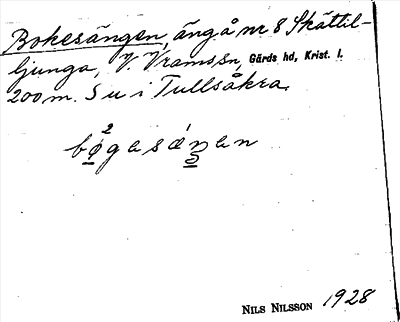 Bokesängen, äng å nr 8 Skättil-
ljunga, V. Vrams sn, Gärds hd, Krist. l.
200 m. S u i Tullsåkra.
2
bøgasáŋan
NILS NILSSON 1928